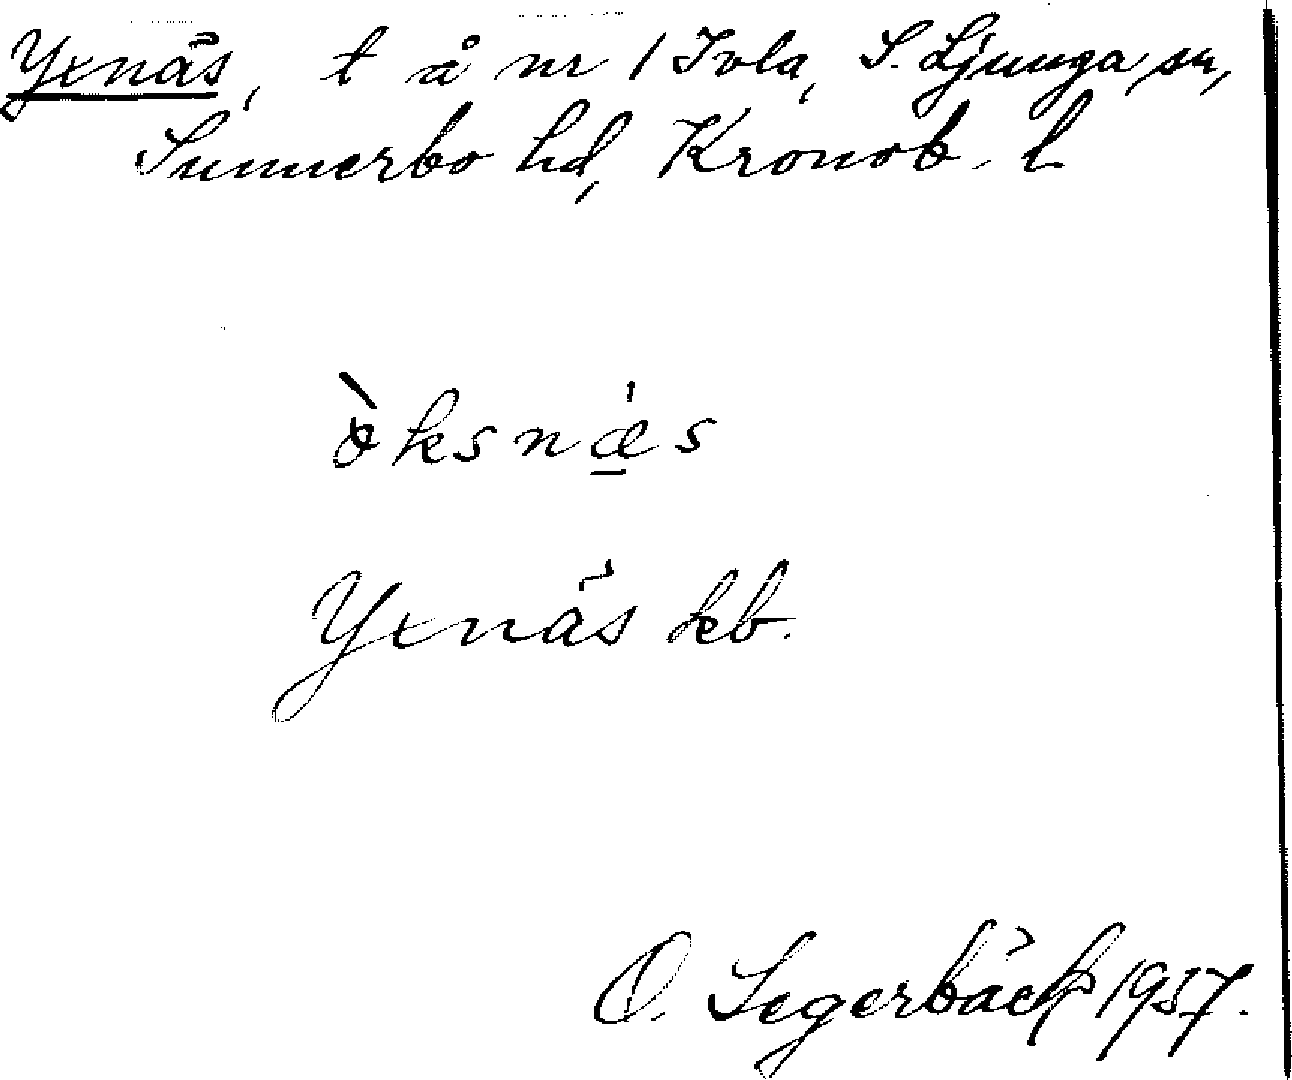 Yxnäs, t å nr 1 Ivla, S. Ljunga sn,
Sunnerbo hd, Kronob. l
òksnǽ̱s
Yxnäs kb.
O. Segerbäck 1957.